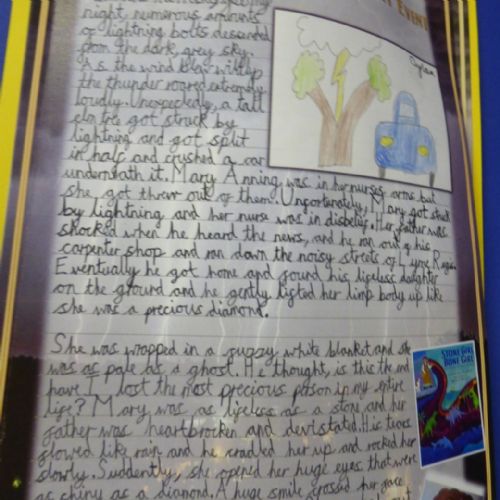 night, numerous amounts
of lightning bolts descended
from the dark, grey sky.
As the wind blew
the thunder roared extremely
loudly. Unexpectedly, a tall
elm tree got struck by
lightning and got split
in half and crushed a car
underneath it. Mary Anning was in her nurses arms but
she got threw out of them. Unfortunately, Mary got struck
by lightning and her nurse was in disbelief. Her father was
shocked when he heard the news, and he ran out of his
carpenter shop and ran down the noisy streets of Lyme Regis.
Eventually he got home and found his lifeless daughter
on the ground and he gently lifted her limp body up like
she was a precious diamond.
She was wrapped in a fuzzy white blanket and she
was as pale as a ghost. He thought, is this the end
have I lost the most precious person in my entire
life? Mary was as lifeless as a stone and her
father was heartbroken and devistated. His tears
flowed like rain and he cradled her up and rocked her
slowly. Suddenly, she opened her huge eyes that were
as shiny as a diamond. A huge smile crossed her face
EVENT
STONE GIRL
BONE GIRL